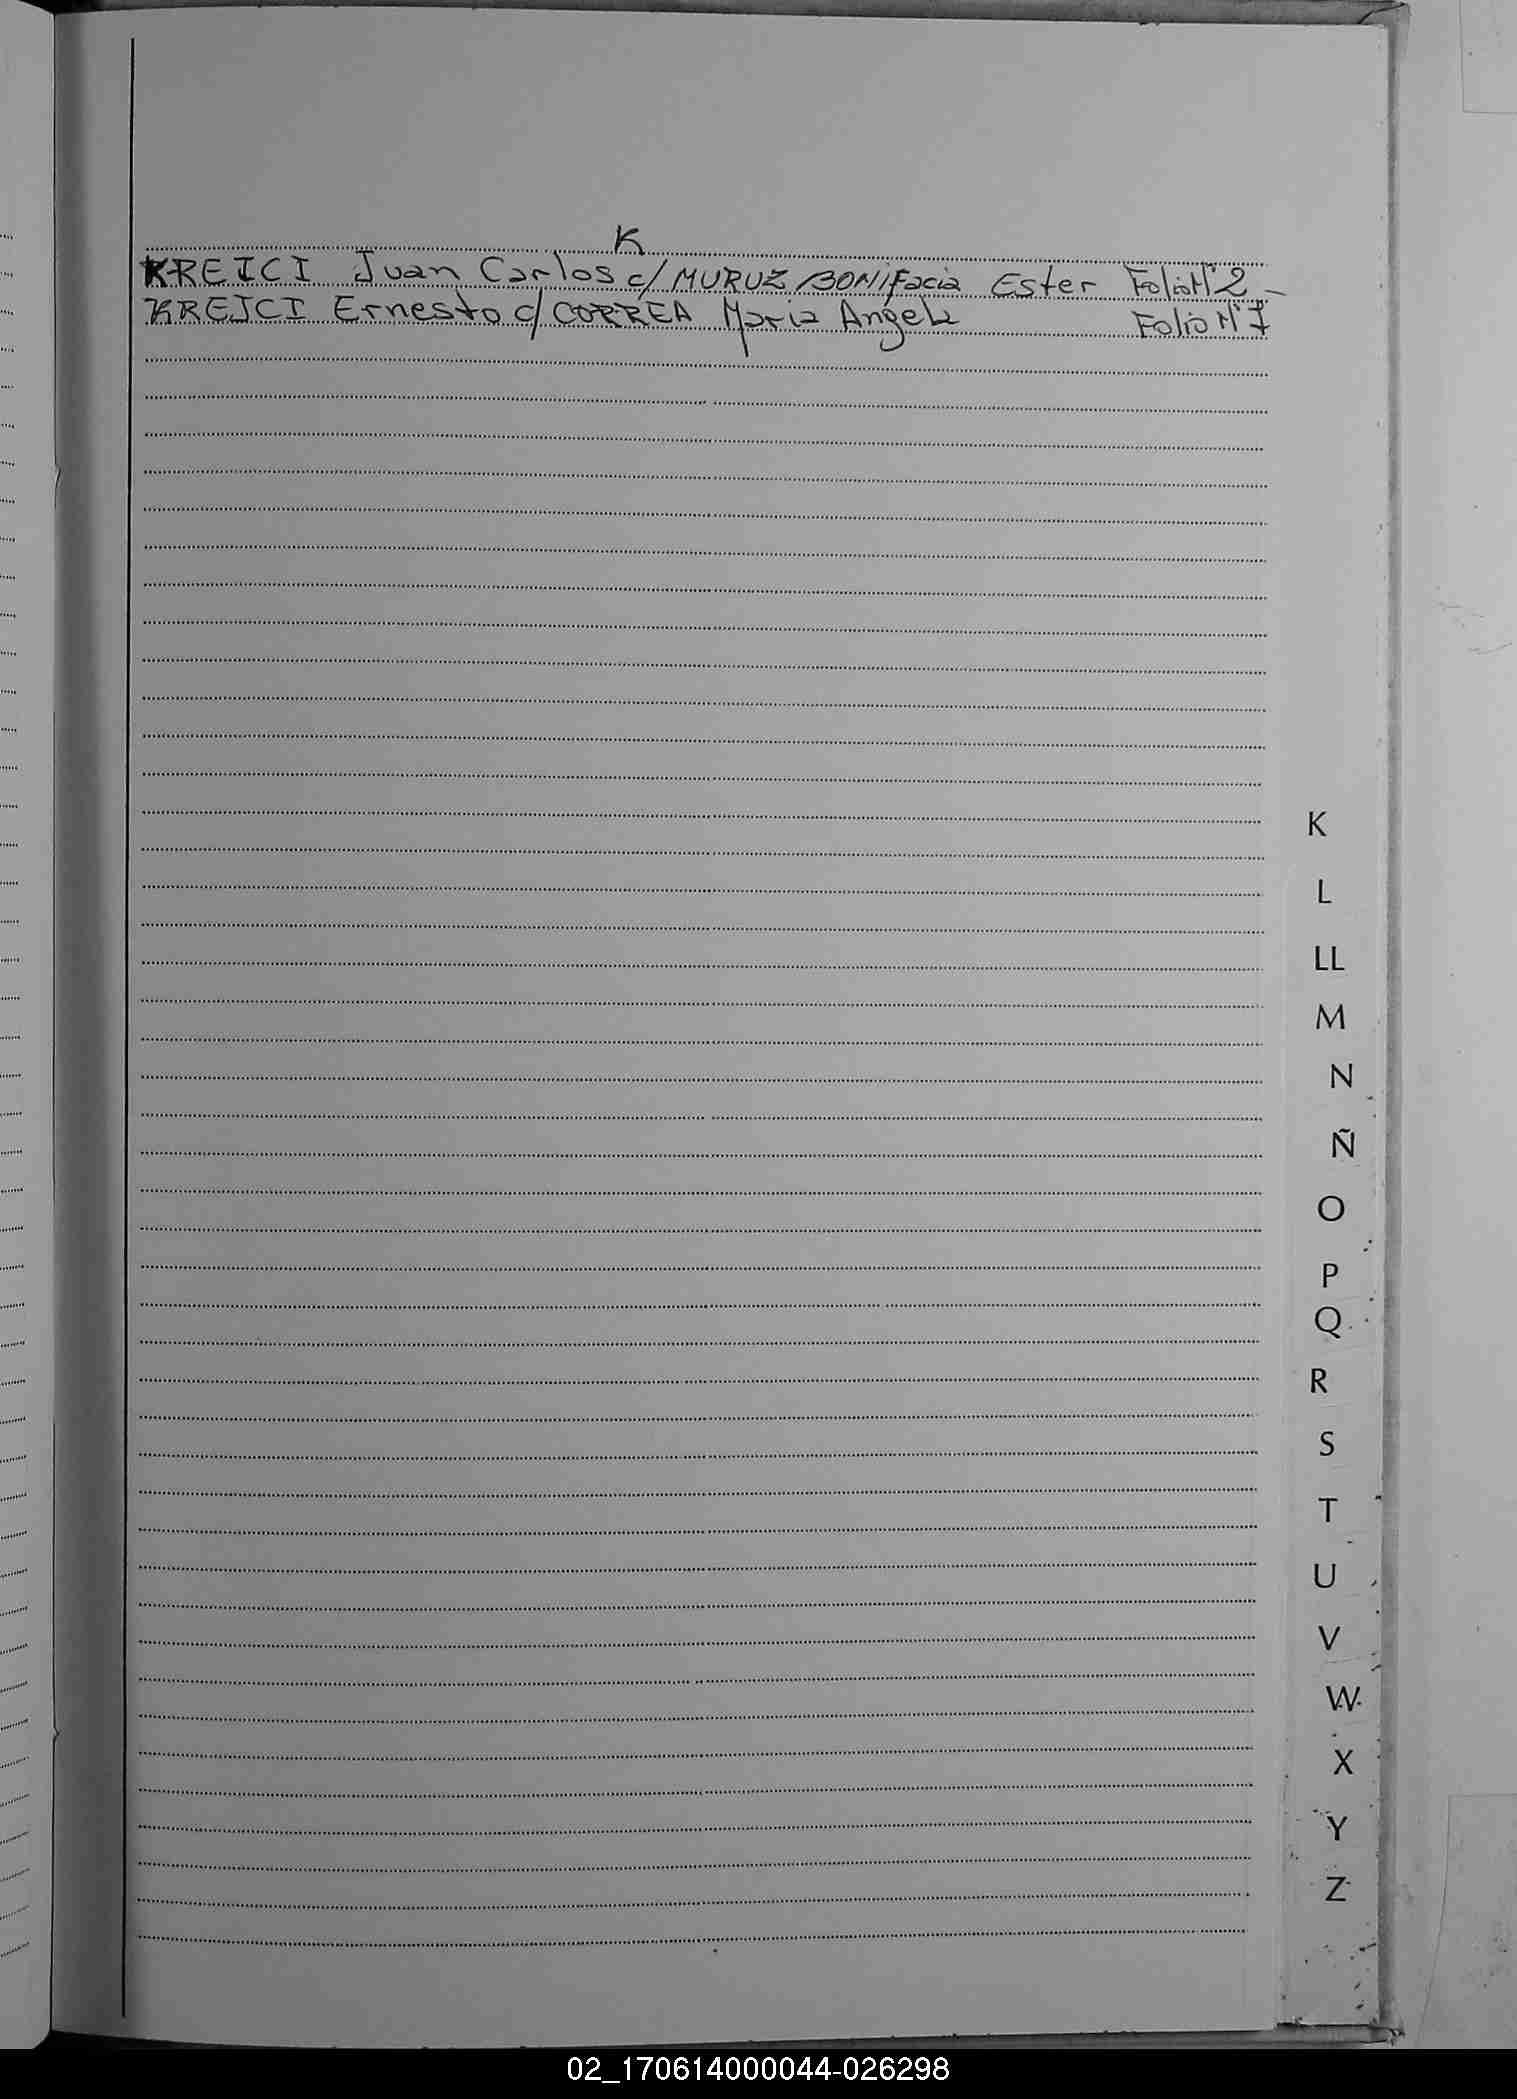 K
KREICI Juan Carlos c/ MURUZ BONIFacia Ester Folio Nº 2 -
KREJCI Ernesto c/ CORREA Maria Angela Folio Nº 7
K
L
LL
M
N
Ñ
O
P
Q
R
S
T
U
V
W
X
Y
Z
02_170614000044-026298